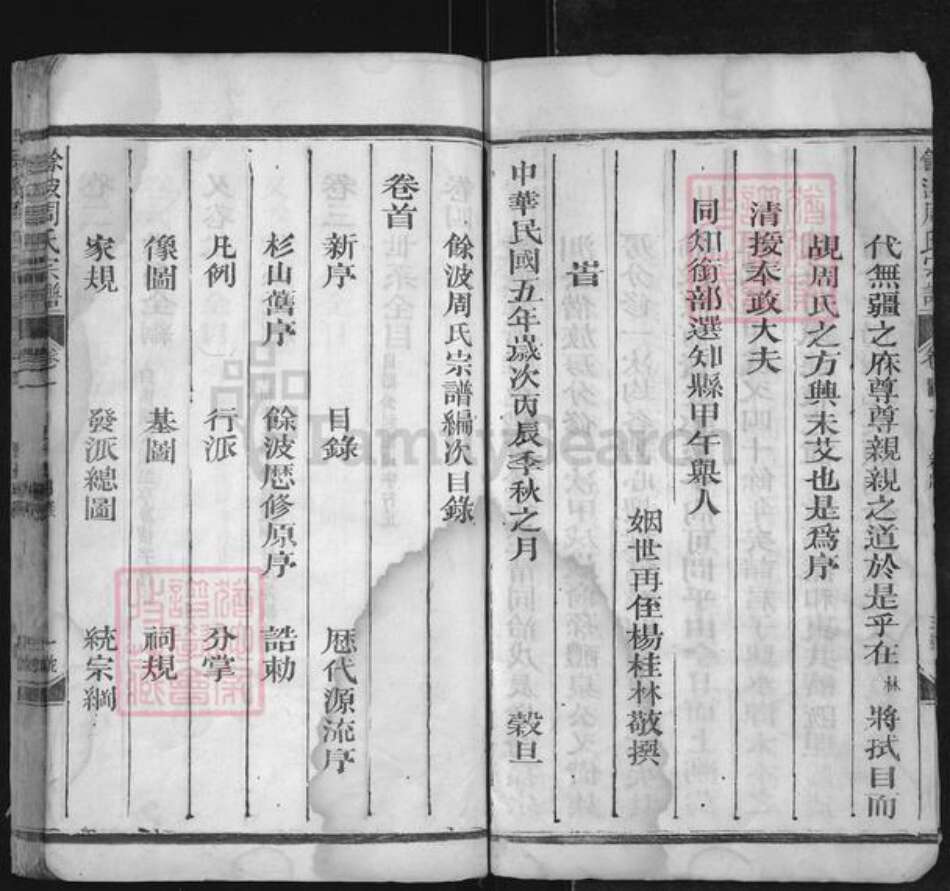 代無疆之庥尊尊親親之道於是乎在林將拭目而
覘周氏之方興未艾也是為序
清授奉政大夫
同知銜部選知縣甲午舉人
姻世再侄楊桂林敬撰
旹
中華民國五年歲次丙辰季秋之月 穀旦
餘波周氏宗譜編次目錄
卷首
新序 目錄 歷代源流序
杉山舊序 餘波歷修原序 誥勅
凡例 行派 分掌
像圖 基圖 祠規
家規 發派總圖 統宗綱
餘波周氏宗譜
FamilySearch